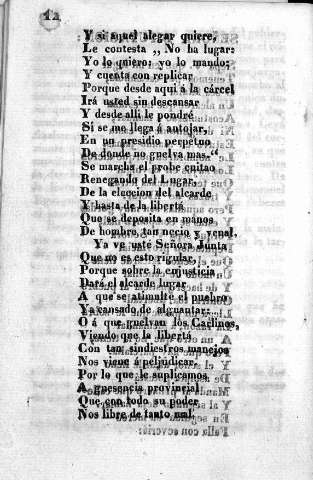 12
Y si aquel alegar quiere,
Le contesta ,, No ha lugar:
Yo lo quiero: yo lo mando:
Y cuenta con replicar
Porque desde aquí á la cárcel
Irá usted sin descansar
Y desde allí le pondré
Sí se me llega á antojar,
En un presidio perpetuo
De donde no gruña mas."
Se marcha el probe cuitao
Renegando del Lugar,
De la eleccion del alcarde
Y hasta de la libertá
Que se deposita en manos
De hombre, tan necio y venal.
Ya ve usté Señora Junta
Que no es esto rigular,
Porque sobre la enjusticia
Dará el alcarde lugar
A que se atimulte el puebro
Ya cansado de aguantar:
O á que guelvan los Carlinos,
Viendo que la libertá
Con tan sindiestros manejos
Nos viene á peljudicar.
Por lo que le suplicamos
A guesencia provincial
Que con todo su poder
Nos libre de tanto mal.